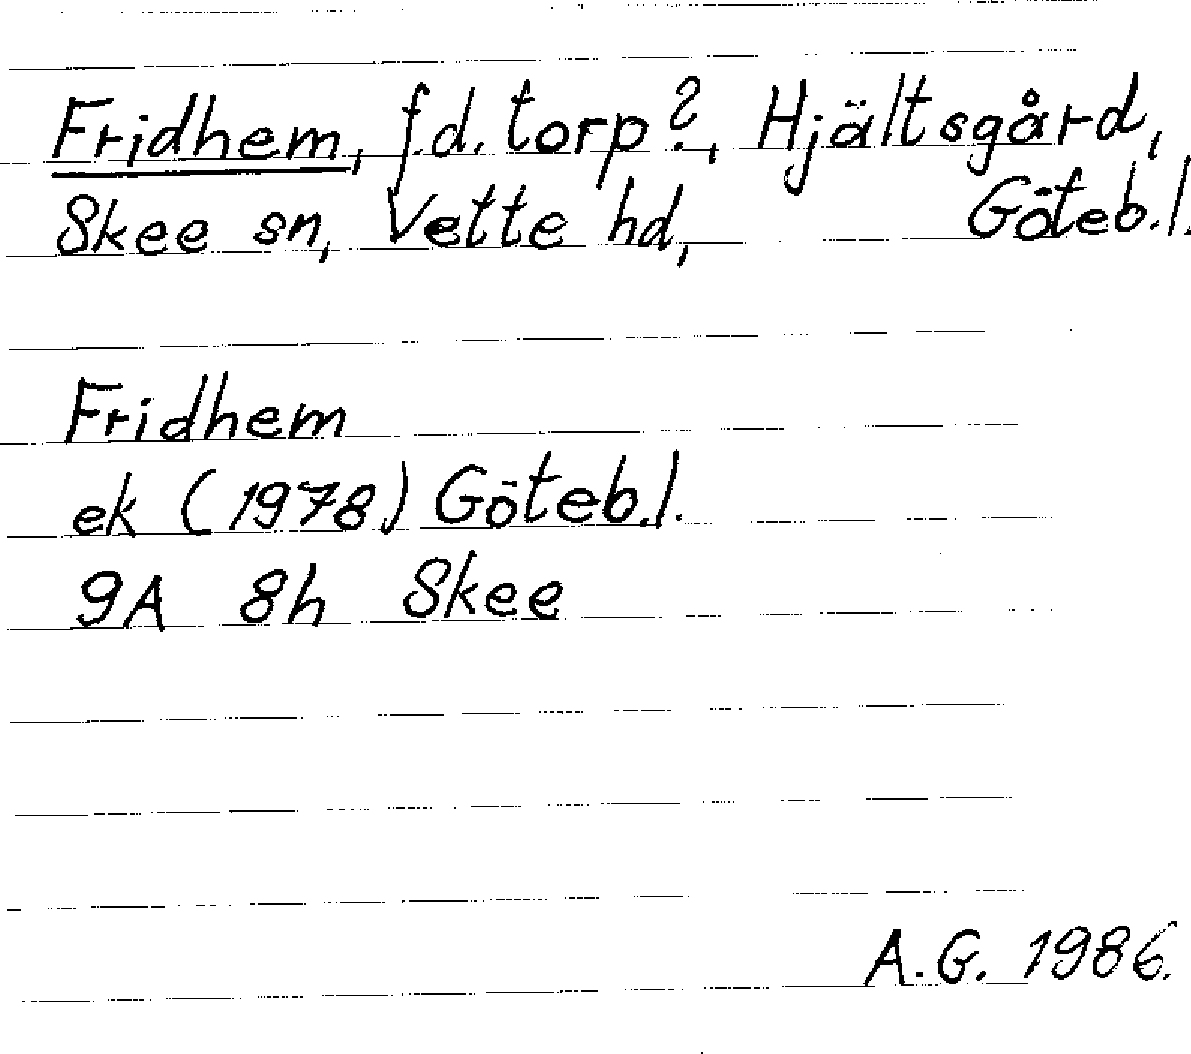 Fridhem, f.d. torp?, Hjältsgård,
Skee sn, Vette hd, Göteb.l.
Fridhem
ek (1978) Göteb.l.
9A 8h Skee
A.G. 1986.